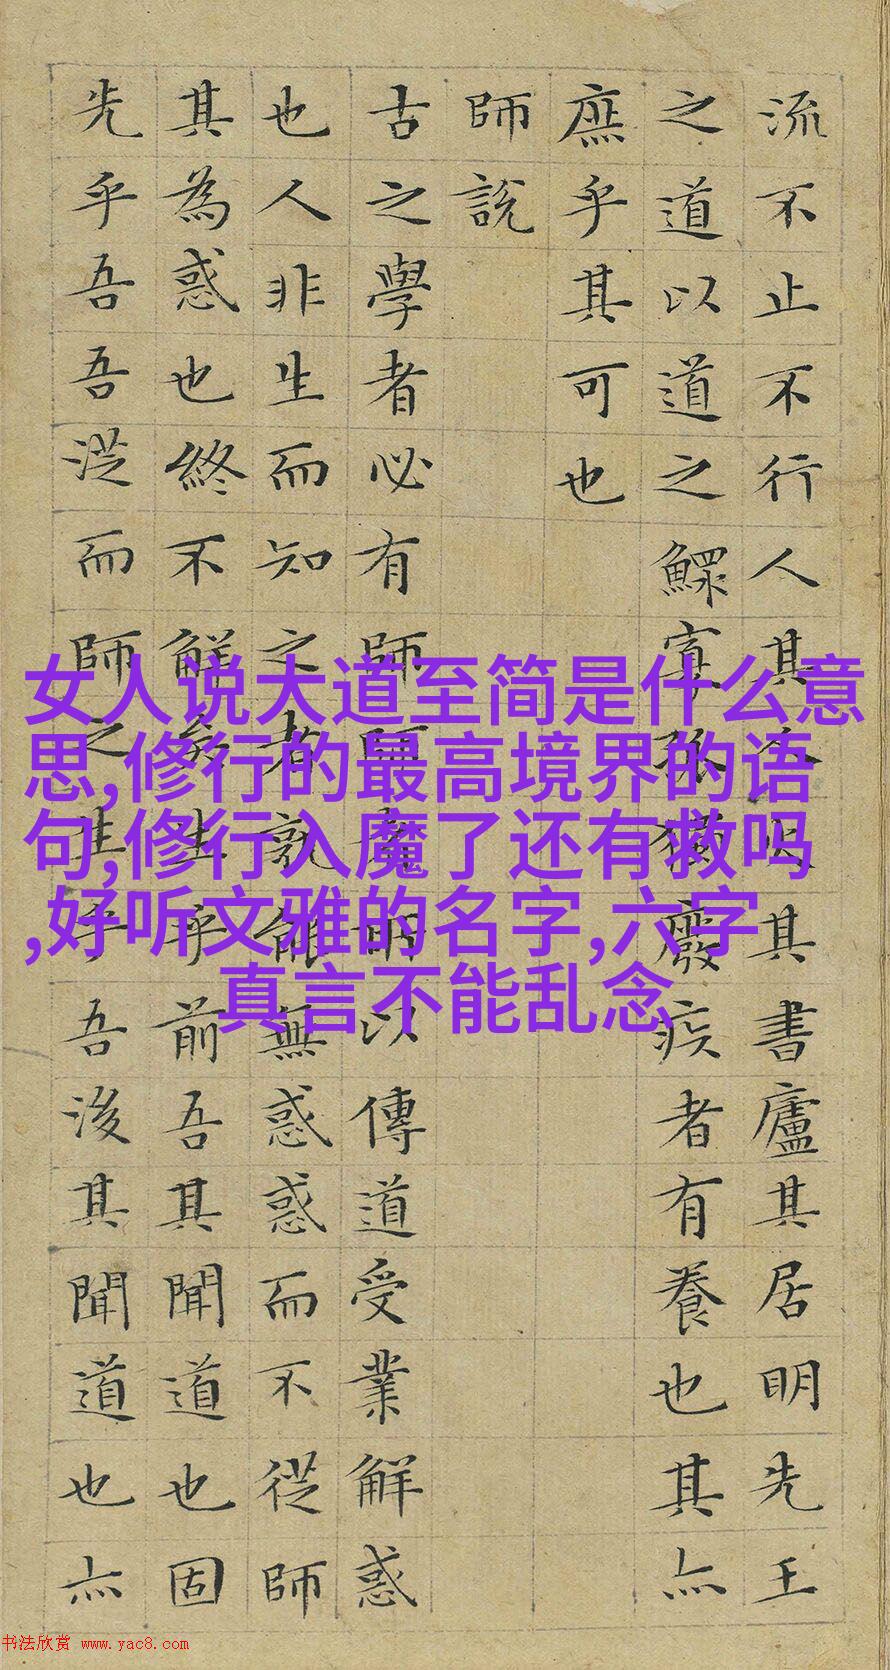 流不止不行人其人火其書廬其居明先王
之道以道之鰥寡孤獨廢疾者有養也其亦
庶乎其可也
師說
古之學者必有師師者所以傳道受業解惑
也人非生而知之者孰能無惑惑而不從師
其為惑也終不解矣生乎前吾其聞道也固
先乎吾吾從而師之生乎吾後其聞道也亦
女人说大道至简是什么意
思,修行的最高境界的语
句,修行入魔了还有救吗
,好听文雅的名字,六字
真言不能乱念
书法欣赏 www.yac8.com